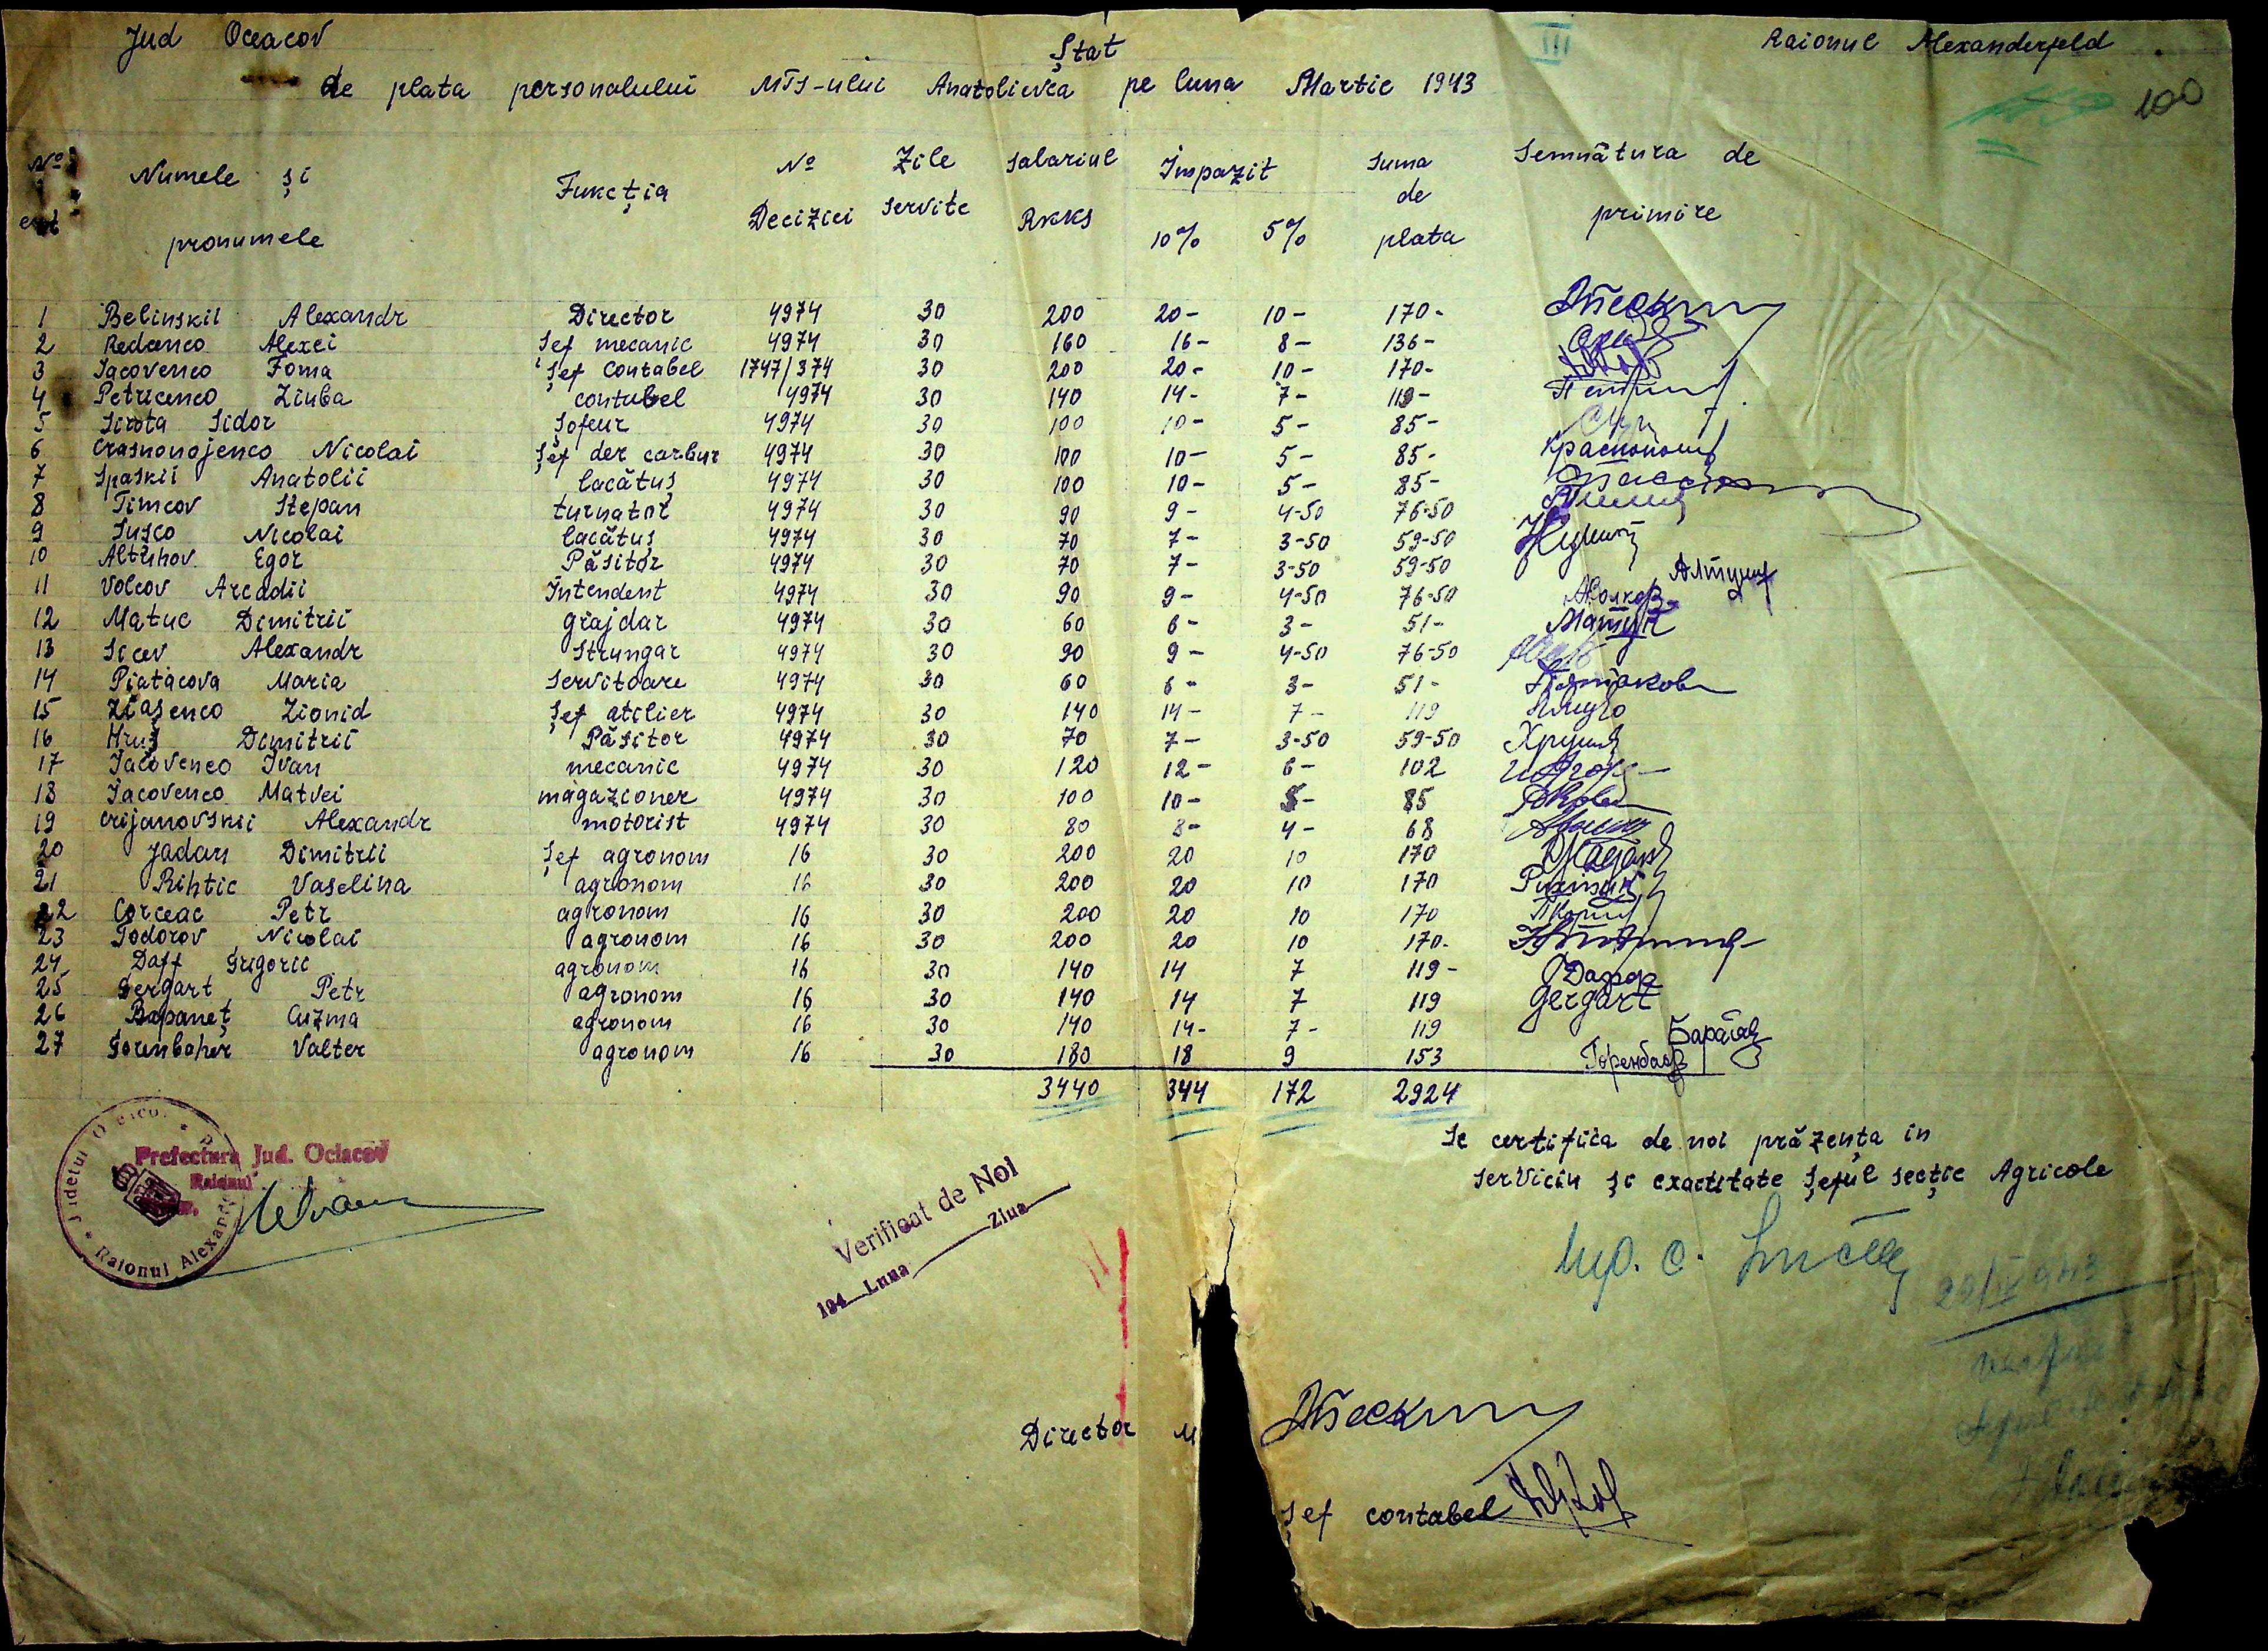 Jud Oceacov
Ștat
III
Raionul Alexanderfeld
de plata personalului MTS-ului Anatolievca pe luna Martie 1943
100
No crt Numele și pronumele Funcția No Deciziei Zile servite Salariul RKKS Împazit 10% 5% Suma de plata Semnătura de primire
1 Belinskii Alexandr Director 4974 30 200 20- 10- 170-
2 Redenco Alexei Șef mecanic 4974 30 160 16- 8- 136-
3 Iacovenco Foma Șef Contabel 1747/374 30 200 20- 10- 170-
4 Petricenco Ziuba contabel 4974 30 140 14- 7- 119-
5 Sirota Sidor Șofeur 4974 30 100 10- 5- 85-
6 Crasnonojenco Nicolai Șef der carbur 4974 30 100 10- 5- 85-
7 Spaskii Anatolii lacătuș 4974 30 100 10- 5- 85-
8 Timcov Stepan turnator 4974 30 90 9- 4-50 76-50
9 Susco Nicolai lacătuș 4974 30 70 7- 3-50 59-50
10 Altuhov Egor Păsitor 4974 30 70 7- 3-50 59-50
11 Volcov Arcadii Intendent 4974 30 90 9- 4-50 76-50
12 Matuc Dimitrii grajdar 4974 30 60 6- 3- 51- Матук
13 Sicev Alexandr Strungar 4974 30 90 9- 4-50 76-50
14 Piatacova Maria Servitoare 4974 30 60 6- 3- 51- Пятакова
15 Ziașenco Zionid Șef atelier 4974 30 140 14- 7- 119
16 Hruș Dimitrii Păsitor 4974 30 70 7- 3-50 59-50
17 Iacovenco Ivan mecanic 4974 30 120 12- 6- 102
18 Iacovenco Matvei magazioner 4974 30 100 10- 5- 85
19 Crijanovskii Alexandr motorist 4974 30 80 8- 4- 68
20 Jadan Dimitrii Șef agronom 16 30 200 20 10 170
21 Rihtic Vaselina agronom 16 30 200 20 10 170
22 Corceac Petr agronom 16 30 200 20 10 170
23 Todorov Nicolai agronom 16 30 200 20 10 170-
24 Daff Grigorie agronom 16 30 140 14 7 119-
25 Gergart Petr agronom 16 30 140 14 7 119 Gergart
26 Bapaneț Cuzma agronom 16 30 140 14- 7- 119
27 Gorenbaher Valter agronom 16 30 180 18 9 153
3440 344 172 2924
Se certifica de noi prăzența in
serviciu și exactitate Șeful secție Agricole
Prefectura Jud. Ociacov
Raionul
Raionul Alexand
Verificat de Noi
194 Luna Ziua
20/IV 943
Director M
Șef contabel